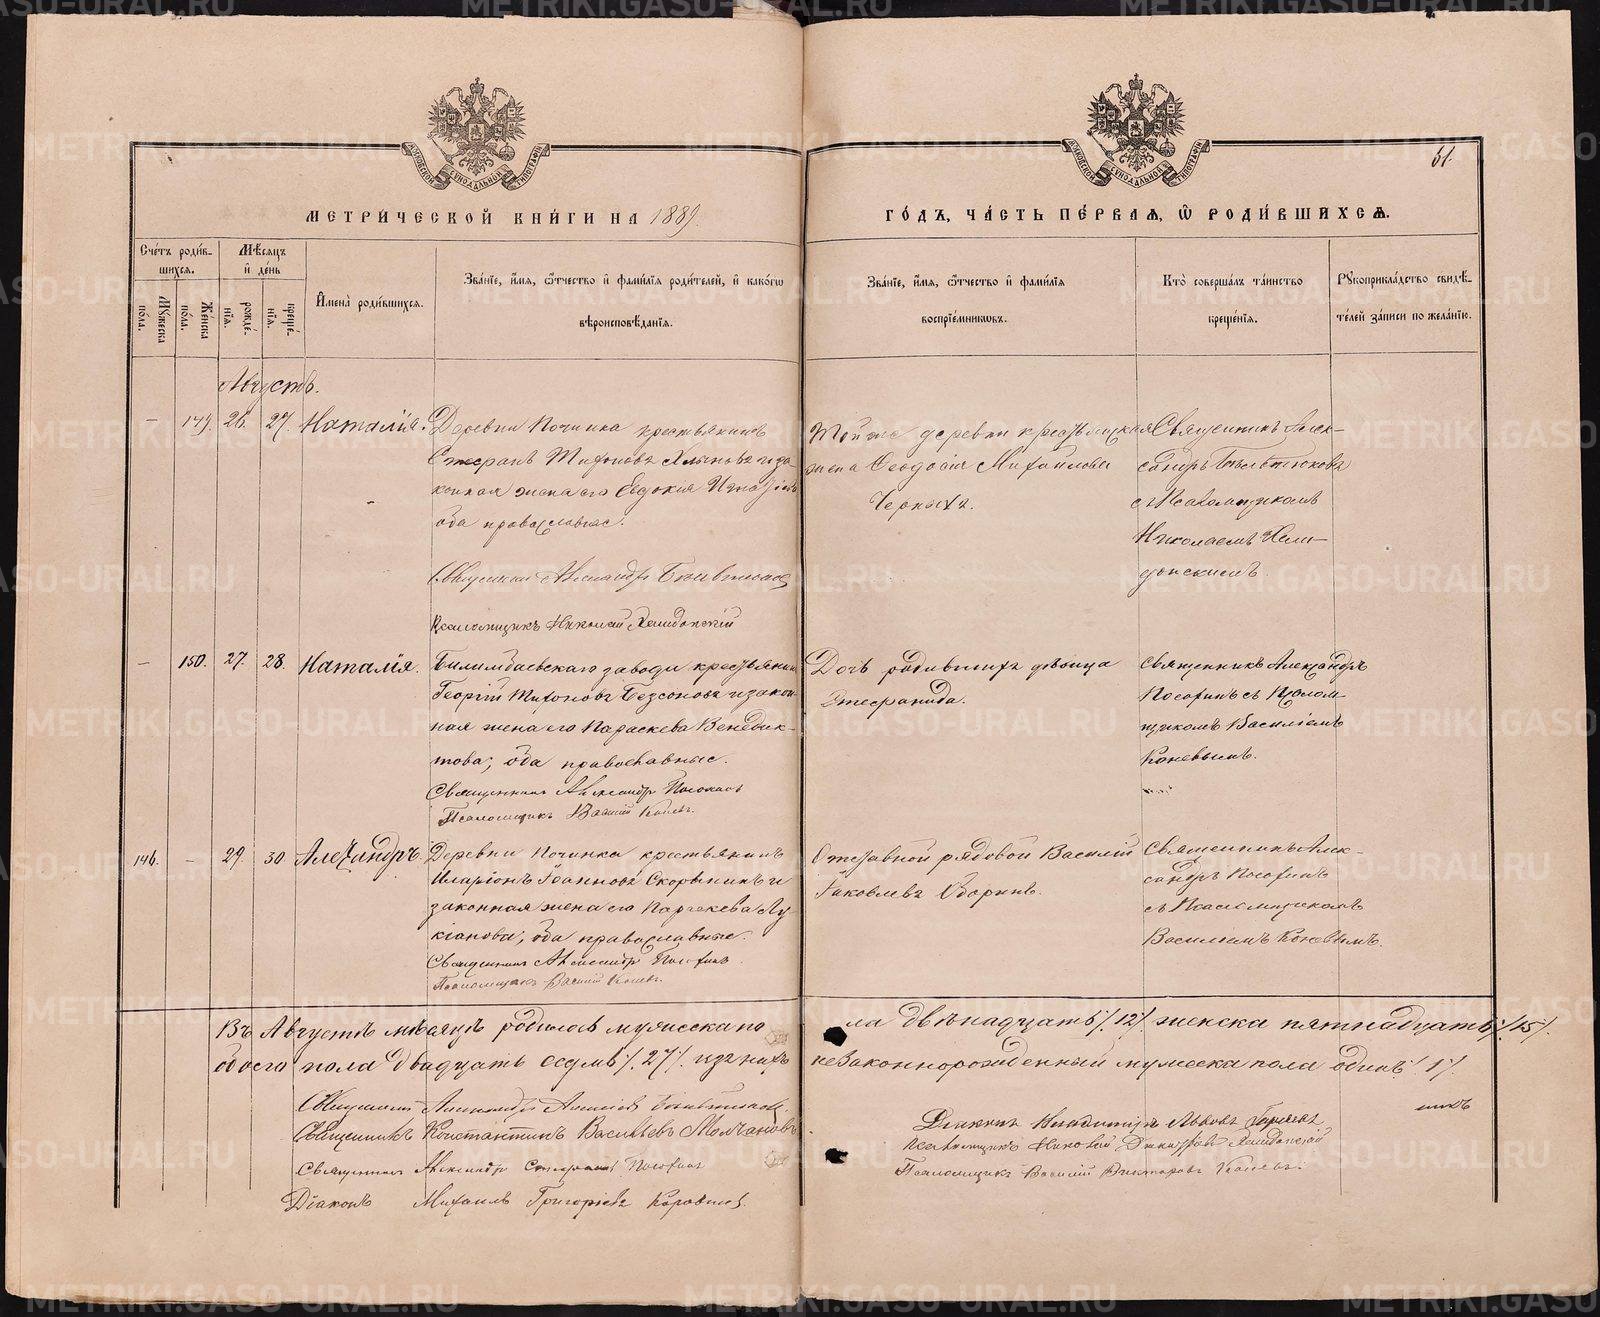 МЕТРИЧЕСКОЙ КНИГИ НА 1889
ГОДЪ, ЧАСТЬ ПЕРВАЯ, Ѡ РОДИВШИХСЯ.
61.
Счетъ родив-
шихся.
Мѣсяцъ
и день
Мужеска
пола.
Женска
пола.
рожде-
нія.
креще-
нія.
Имена родившихся.
Званіе, имя, ѿчество и фамилія родителей, и какогѡ
вѣроисповѣданія.
Званіе, имя, ѿчество и фамилія
воспріемникѡвъ.
Кто совершалъ таинство
крещенія.
Рукоприкладство свидѣ-
телей записи по желанію.
Августъ.
149. 26. 27. Наталія.
Деревни Починка крестьянинъ
Стефанъ Тихоновъ и за-
конная жена его Евдокія
оба православные.
Священникъ Александръ
Псаломщикъ Николай Хелидонскій
Тойже деревни крестьянская
жена Ѳеодосія Михайлова
Черныхъ.
Священникъ Алек-
сандръ
съ Псаломщикомъ
Николаемъ Хели-
донскимъ.
150. 27. 28. Наталія.
Билимбаевскаго завода крестьянинъ
Георгій Тихоновъ Безсоновъ и закон-
ная жена его Параскева Венедик-
това; оба православные.
Священникъ Александръ
Псаломщикъ Василій Коневъ.
Дочь родившихъ дѣвица
Стефанида.
Священникъ Александръ
съ Псалом-
щикомъ Василіемъ
Коневымъ.
146. 29. 30 Александръ.
Деревни Починка крестьянинъ
Иларіонъ Іоанновъ Скорынинъ и
законная жена его Параскева Лу-
кіанова; оба православные.
Священникъ Александръ
Псаломщикъ Василій Коневъ.
Отставной рядовой Василій
Іаковлевъ
Священникъ Алек-
сандръ
съ Псаломщикомъ
Василіемъ Коневымъ.
Въ Августѣ мѣсяцѣ родилось мужеска по
ла двѣнадцать /12/ женска пятнадцать /15/.
обоего пола двадцать седмь /27/. изъ нихъ
незаконнорожденный мужеска пола одинъ /1/.
Священникъ Александръ Алексіевъ
Священникъ Константинъ Васильевъ Молчановъ
Священникъ Александръ Стефановъ
Діаконъ Михаилъ Григоріевъ
Діаконъ Владиміръ Львовъ
Псаломщикъ Николай Димитріевъ Хелидонскій
Псаломщикъ Василій Викторовъ Коневъ.
METRIKI.GASO-URAL.RU